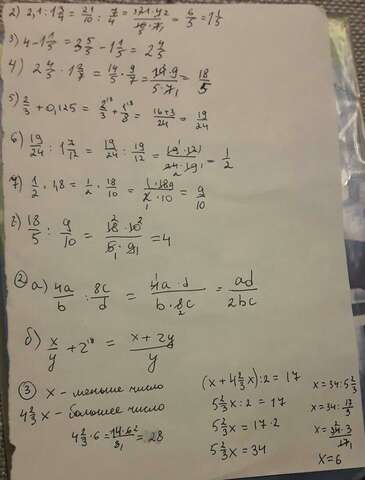 2) 2,1 : 1 3/4 = 21/10 : 7/4 = 21·4/10·7 = 6/5 = 1 1/5
3) 4 - 1 1/5 = 3 5/5 - 1 1/5 = 2 4/5
4) 2 4/5 · 1 2/7 = 14/5 · 9/7 = 14·9/5·7 = 18/5
5) 2/3 + 0,125 = 2/3 + 1/8 = 16+3/24 = 19/24
6) 19/24 : 1 7/12 = 19/24 : 19/12 = 19·12/24·19 = 1/2
7) 1/2 · 1,8 = 1/2 · 18/10 = 1·18/2·10 = 9/10
18/5 : 9/10 = 18·10/5·9 = 4
② а) 4a/b : 8c/d = 4a·d/b·8c = ad/2bc
б) x/y + 2 = x+2y/y
③ x - меньше число
4 2/3 x - большее число
4 2/3 · 6 = 14·6/3 = 28
(x + 4 2/3 x) : 2 = 17
5 2/3 x : 2 = 17
5 2/3 x = 17 · 2
5 2/3 x = 34
x = 34 : 5 2/3
x = 34 : 17/3
x = 34·3/17
x = 6